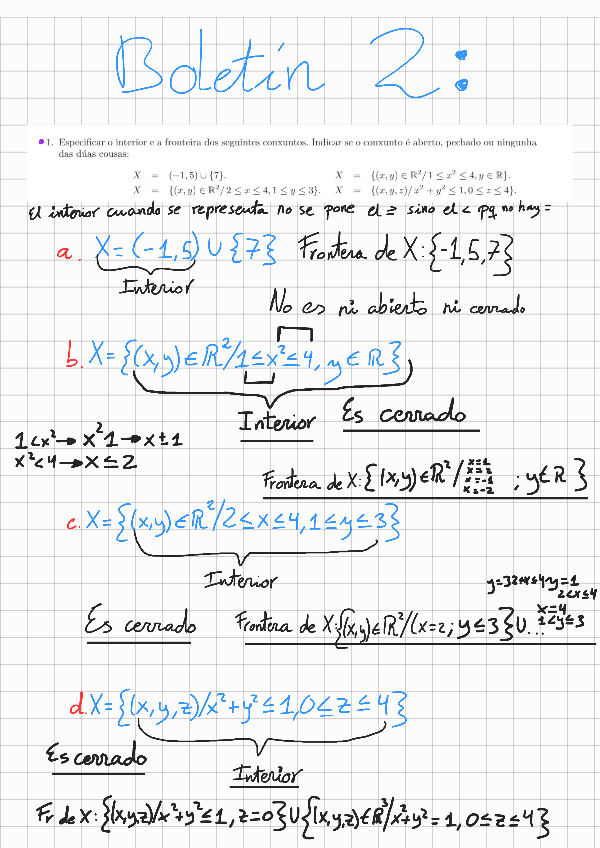 Boletín 2:
1. Especificar o interior e a fronteira dos seguintes conxuntos. Indicar se o conxunto é aberto, pechado ou ningunha
das dúas cousas:
X = (−1, 5) ∪ {7}. X = {(x, y) ∈ ℝ²/1 ≤ x² ≤ 4, y ∈ ℝ}.
X = {(x, y) ∈ ℝ²/2 ≤ x ≤ 4, 1 ≤ y ≤ 3}. X = {(x, y, z)/x² + y² ≤ 1, 0 ≤ z ≤ 4}.
El interior cuando se representa no se pone el ≥ sino el < pq no hay =
a. X = (-1,5) ∪ {7} Frontera de X: {-1,5,7}
Interior
No es ni abierto ni cerrado
b. X = {(x,y) ∈ ℝ²/1 ≤ x² ≤ 4, y ∈ ℝ}
Interior Es cerrado
1 < x² → x² 1 → x ± 1
x² < 4 → x ≤ 2
Frontera de X: {(x,y) ∈ ℝ²/ x=1 x=2 x=-1 x=-2 ; y ∈ ℝ}
c. X = {(x,y) ∈ ℝ²/2 ≤ x ≤ 4, 1 ≤ y ≤ 3}
Interior
y=3 2≤x≤4 y=1
2<x≤4
x=4
1<y≤3
Es cerrado Frontera de X: {(x,y) ∈ ℝ²/(x=2; y ≤ 3} ∪ ...
d. X = {(x,y,z)/x²+y² ≤ 1, 0 ≤ z ≤ 4}
Es cerrado
Interior
Fr de X: {(x,y,z)/x²+y² ≤ 1, z=0} ∪ {(x,y,z) ∈ ℝ³/x²+y² = 1, 0 ≤ z ≤ 4}